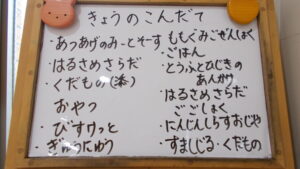 きょうのこんだて
・あつあげのみーとそーす
・はるさめさらだ
・くだもの
おやつ
・びすけっと
・ぎゅうにゅう
ももぐみごぜんしょく
・ごはん
・とうふとひじきの
あんかけ
・はるさめさらだ
ごごしょく
・にんじんしらすおじや
・すましじる・くだもの